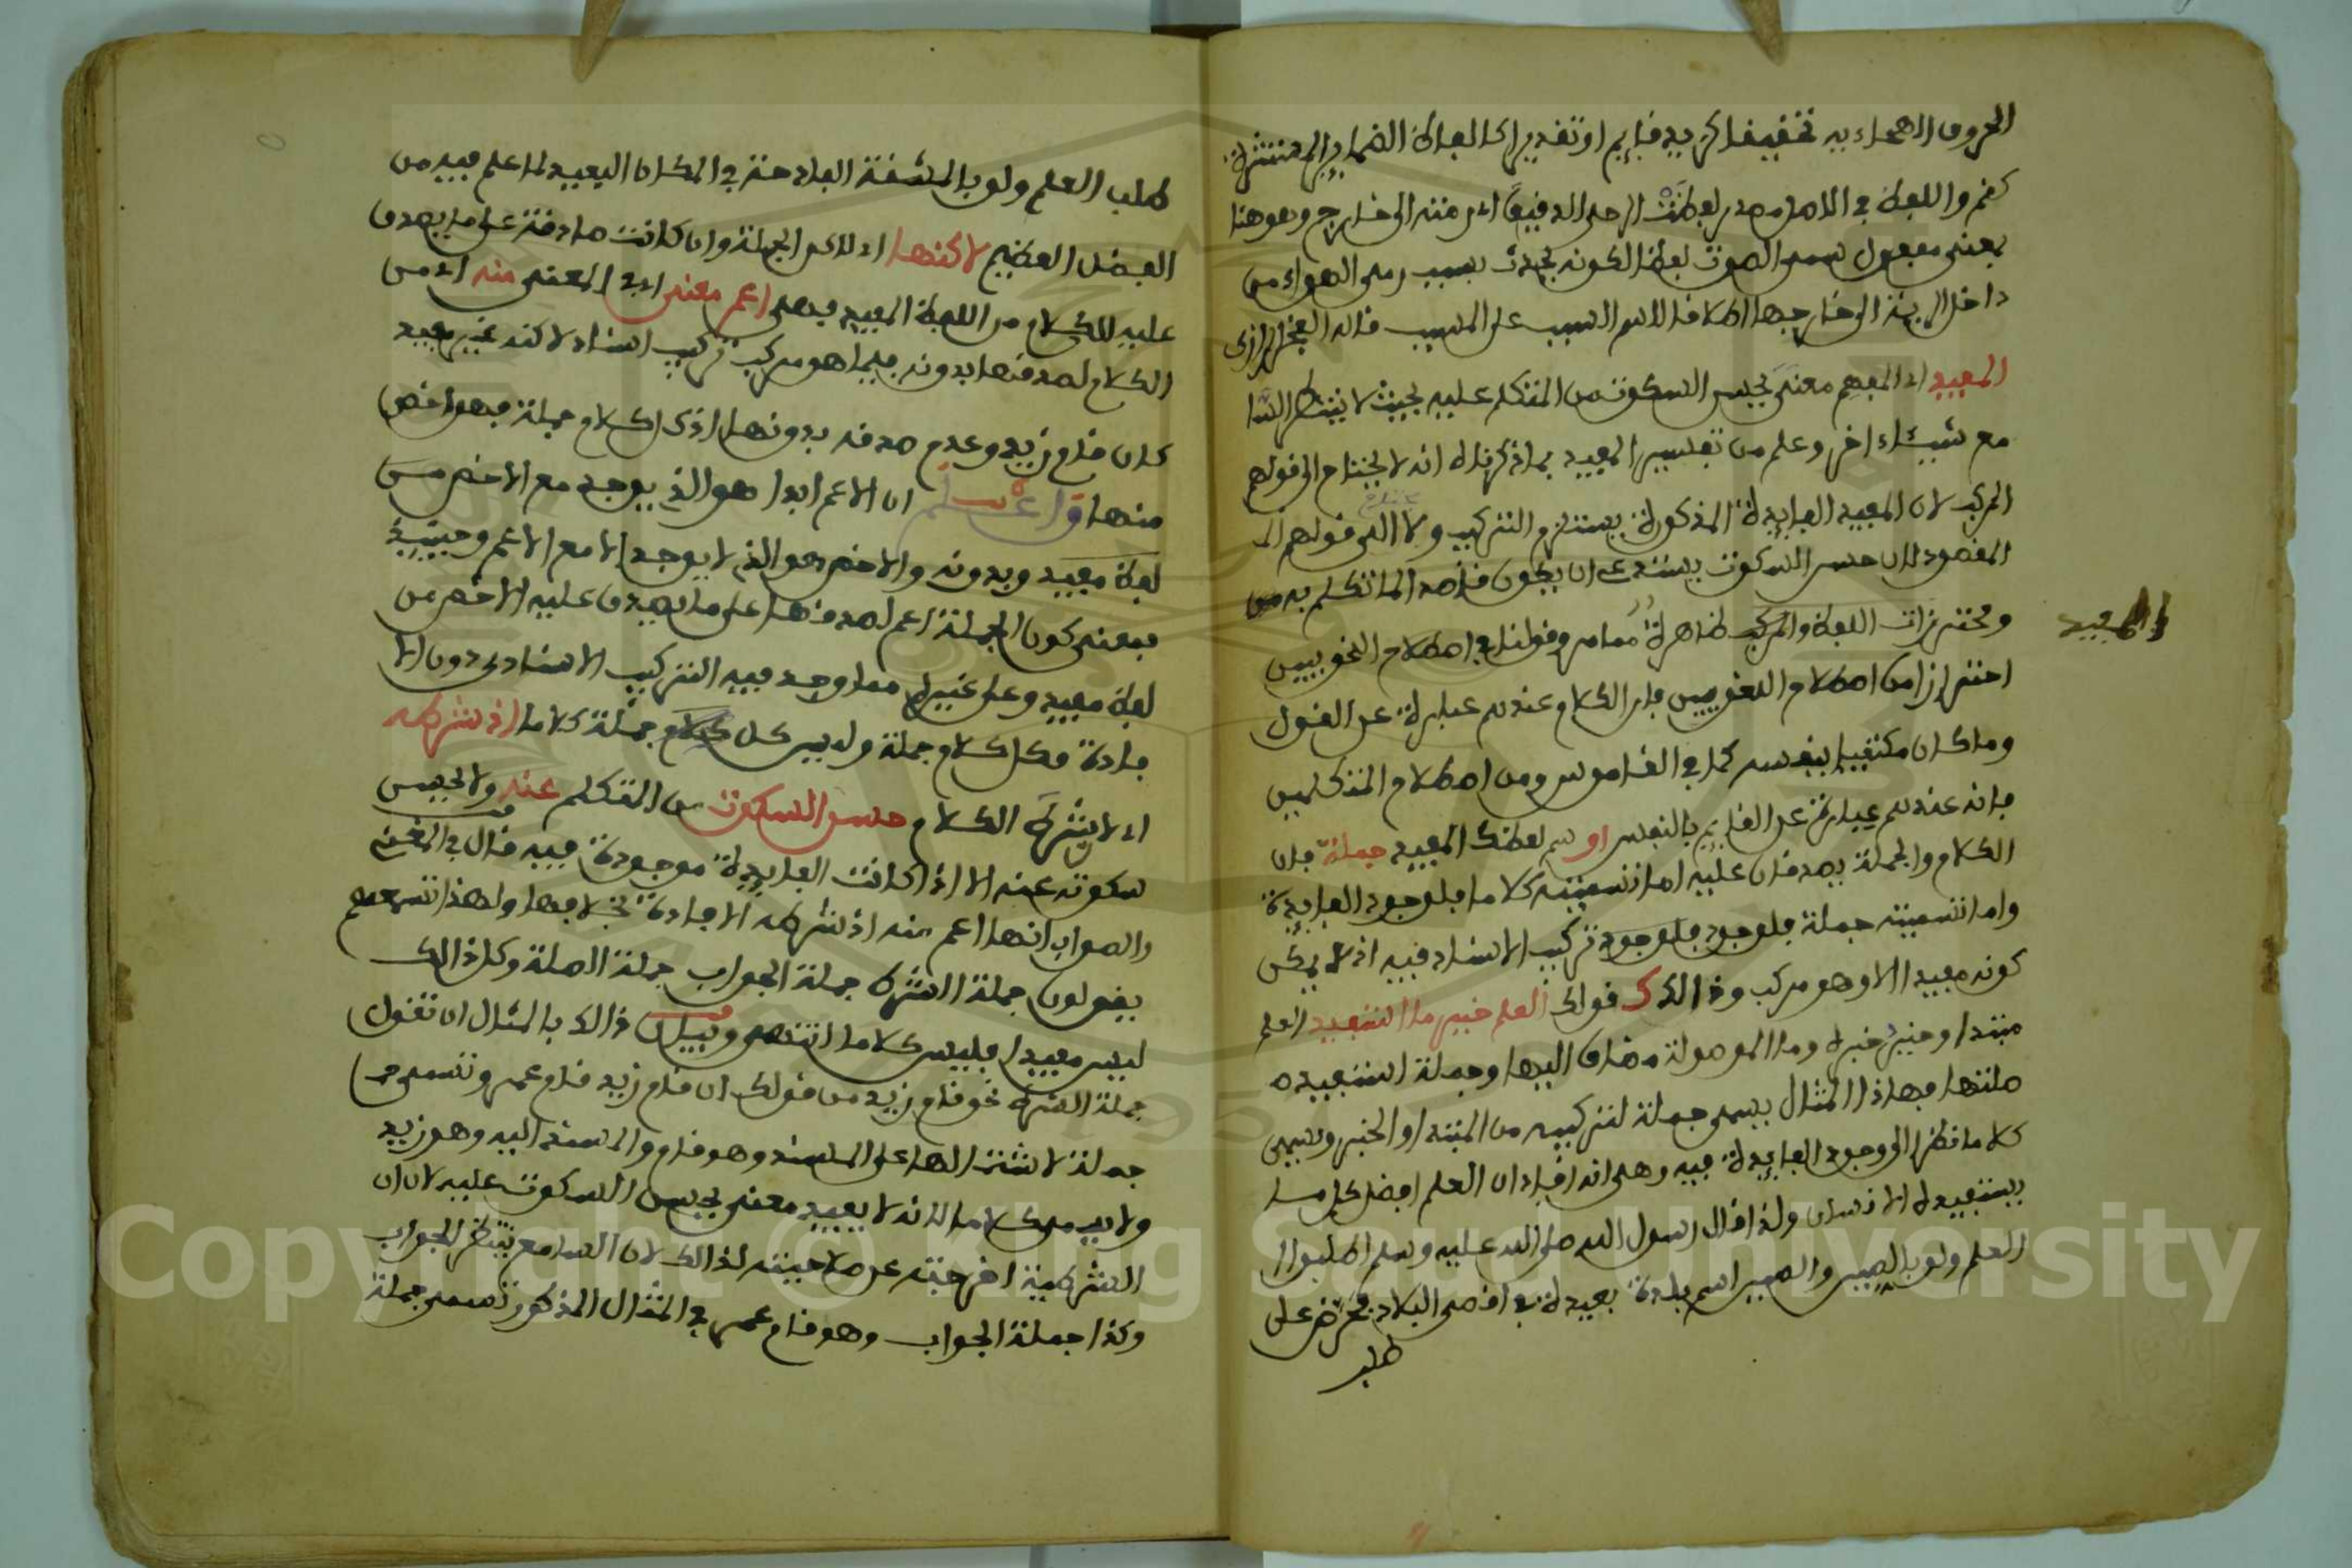 الحروف الهجاءيه تحقيقا كزيد قايم او تقديرا كالفاظ الضماير المستترة
كقم واللفظ في الاصل مصدر لفظت الرحى الدقيق اي رمته الى خارج وهو هنا
بمعنى مفعول سمى الصوت لفظا لكونه يحدث بسبب رمى الهواء من
داخل الرية الى خارجها اطلاقا لاسم السبب على المسبب قاله الفخر الرازى
المفيد اي المفهم معنى يحسن السكوت من المتكلم عليه بحيث لا ينتظر السا
مع شيئا اخر وعلم من تفسير المفيد بما ذكرناه انه لا يحتاج الى قولهم
المركب لان المفيد الفايدة المذكورة يستلزم التركيب ولا الى قولهم الـ
المقصود لان حسن السكوت يستدعى ان يكون قاصدا لما تكلم به
ومحترزات اللفظ والمركب ظاهرة مما مر وقولنا في اصطلاح النحويين
والمفيد
احترازا من اصطلاح اللغويين فان الكلام عندهم عبارة عن القول
وما كان مكتفيا بنفسه كما في القاموس ومن اصطلاح المتكلمين
فانه عندهم عبارة عن القايم بالنفس او سم لفظك المفيد جملة فان
الكلام والجملة يصدقان عليه اما تسميته كلاما فلوجود الفايدة
واما تسميته جملة فلوجود فلوجود تركيب الاسناد فيه اذ لا يمكن
كونه مفيدا الا وهو مركب وذالك ك قولك العلم خير ما استفيد العلم
مبتدا وخير خبره وما الموصولة مضاف اليها وجملة استفيد
صلتها فهاذا المثال يسمى جملة لتركيبه من المبتدا والخبر ويسمى
كلاما نظرا الى وجود الفايدة فيه وهى انه افاد ان العلم افضل كل ما
يستفيده الانسان ولذا قال رسول الله صلى الله عليه وسلم اطلبوا ا
لعلم ولو بالصين والصين اسم بلدة بعيدة في اقصى البلاد فحرض على
طلب
طلب العلم ولو بالمشقة الفادحة في المكان البعيد لما علم فيه من
الفضل العظيم لاكنها اي لاكن الجملة وان كانت صادقة على ما يصدق
عليه الكلام من اللفظ المفيد فهى اعم معنى اي في المعنى منه اي من
الكلام لصدقها بدونه فيما هو مركب تركيب اسناد لاكنه غير مفيد
كان قام زيد وعدم صدقه بدونها اذ كل كلام جملة فهو اخص
منها واعلم ان الاعم ابدا هو الذى يوجد مع الاخص
لفظ مفيد وبدونه والاخص هو الذى لا يوجد الا مع الاعم وحينيذ
فمعنى كون الجملة اعم لصدقها على ما يصدق عليه الاخص من
لفظ مفيد وعلى غيره مما وجد فيه التركيب الاسنادى دون الا
فادة فكل كلام جملة وليس كل جملة كلاما اذ شرطه
اي لا يشرط الكلام حسن السكوت من المتكلم عنه ولا يحسن
سكوته عنه الا اذا كانت الفايدة موجودة فيه قال في المغنى
والصواب انها اعم منه اذ شرطه الافادة بخلافها ولهذا تسمعهم
يقولون جملة الشرط جملة الجواب جملة الصلة وكل ذالك
ليس مفيدا فليس كلاما انتهى وبيان ذالك بالمثال ان تقول
جملة الشرط نحو قام زيد من قولك ان قام زيد قام عمر وتسمى
جملة لاشتمالها على المسند وهو قام والمسند اليه وهو زيد
ولا يسمى كلاما لانه لا يفيد معنى يحسن السكوت عليه لان ان
الشرطية اخرجته عن صلاحيته لذالك لان السامع ينتظر الجواب
وكذا جملة الجواب وهو قام عمر في المثال المذكور تسمى جملة
Copyright © King Saud University
1957